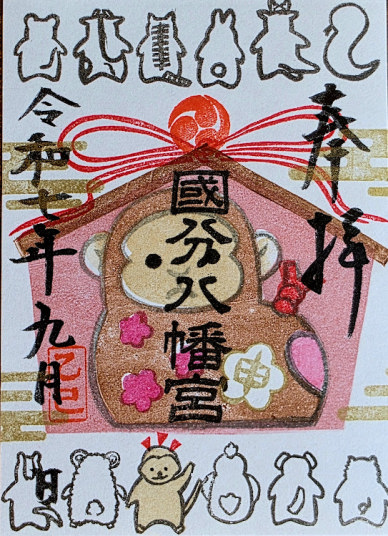 奉拝
國分八幡宮
申
令和七年九月
日
乙巳